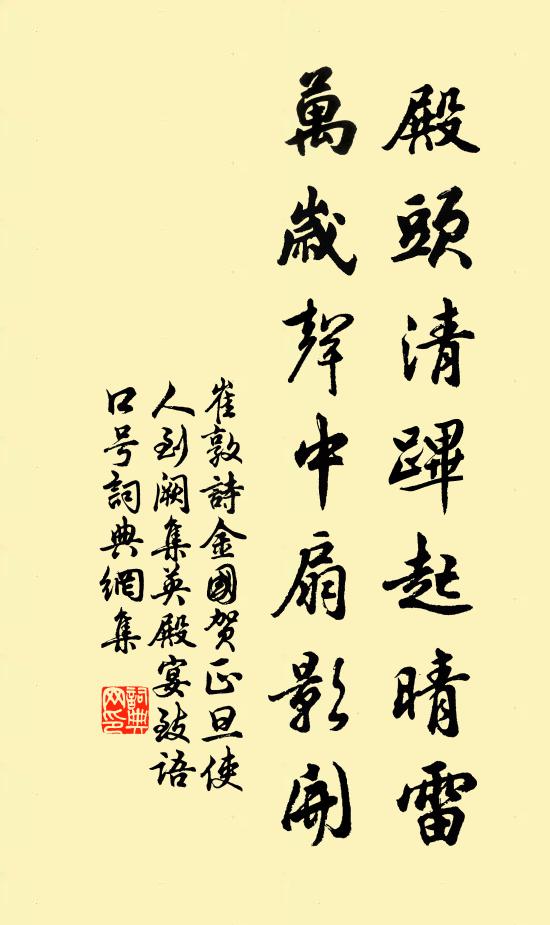 殿頭清蹕起晴雷
萬歲聲中扇影開
崔敦詩金國贺正旦使
人到阙集英殿宴致语
口号詞典網集
詞典
网印